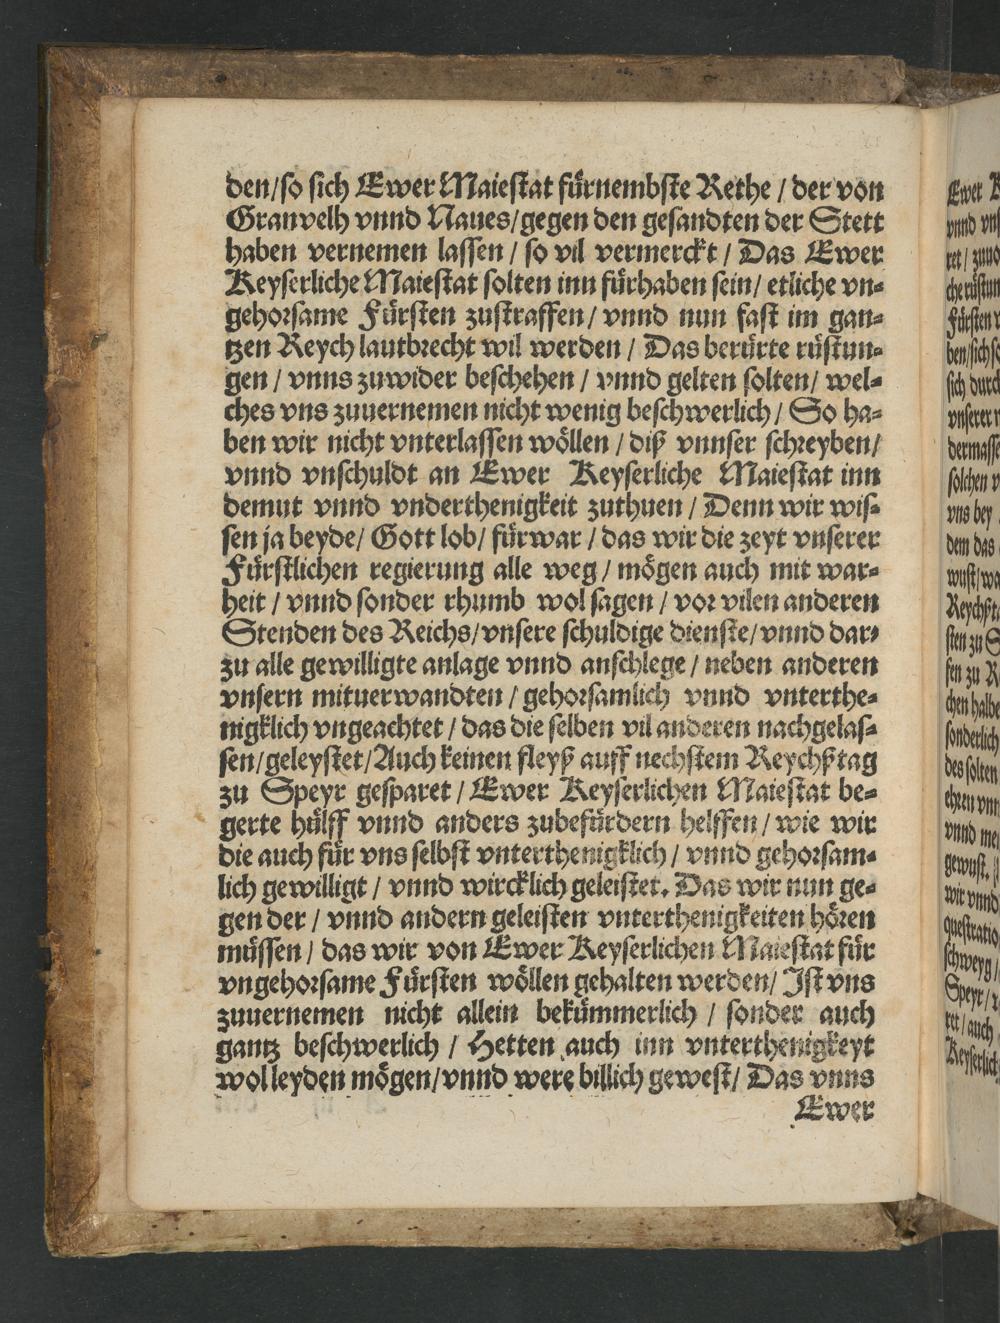 den/so sich Ewer Maiestat fürnembste Rethe / der von
Granvelh vnnd Naues/gegen den gesandten der Stett
haben vernemen lassen / so vil vermerckt / Das Ewer
Keyserliche Maiestat solten inn fürhaben sein/ etliche vn-
gehorsame Fürsten zustraffen / vnnd nun fast im gan-
tzen Reych lautbrecht wil werden / Das berürte rüstun-
gen / vnns zuwider beschehen / vnnd gelten solten/ wel-
ches vns zuuernemen nicht wenig beschwerlich / So ha-
ben wir nicht vnterlassen wöllen / diß vnnser schreyben/
vnnd vnschuldt an Ewer Keyserliche Maiestat inn
demut vnnd vnderthenigkeit zuthuen / Denn wir wis-
sen ja beyde/ Gott lob/ fürwar / das wir die zeyt vnserer
Fürstlichen regierung alle weg / mögen auch mit war-
heit / vnnd sonder rhumb wol sagen / vor vilen anderen
Stenden des Reichs/vnsere schuldige dienste/vnnd dar-
zu alle gewilligte anlage vnnd anschlege / neben anderen
vnsern mituerwandten / gehorsamlich vnnd vnterthe-
nigklich vngeachtet / das die selben vil anderen nachgelas-
sen/geleystet/Auch keinen fleyß auff nechstem Reychßtag
zu Speyr gesparet / Ewer Keyserlichen Maiestat be-
gerte hülff vnnd anders zubefürdern helffen / wie wir
die auch für vns selbst vnterthenigklich / vnnd gehorsam-
lich gewilligt / vnnd wircklich geleistet. Das wir nun ge-
gen der / vnnd andern geleisten vnterthenigkeiten hören
müssen / das wir von Ewer Keyserlichen Maiestat für
vngehorsame Fürsten wöllen gehalten werden/ Ist vns
zuuernemen nicht allein bekümmerlich / sonder auch
gantz beschwerlich / Hetten auch inn vnterthenigkeyt
wol leyden mögen/vnnd were billich gewest/ Das vnns
Ewer